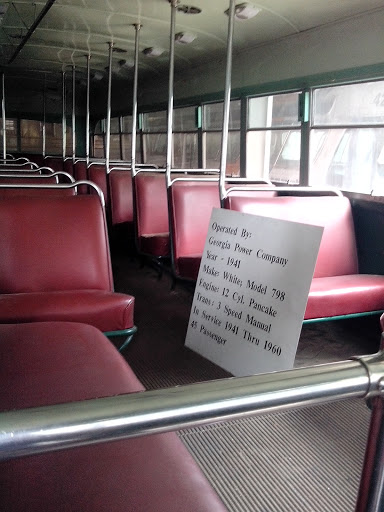 Operated By:
Georgia Power Company
Year - 1941
Make: White; Model 798
Engine: 12 Cyl. Pancake
Trans: 3 Speed Manual
In Service 1941 Thru 1960
45 Passenger